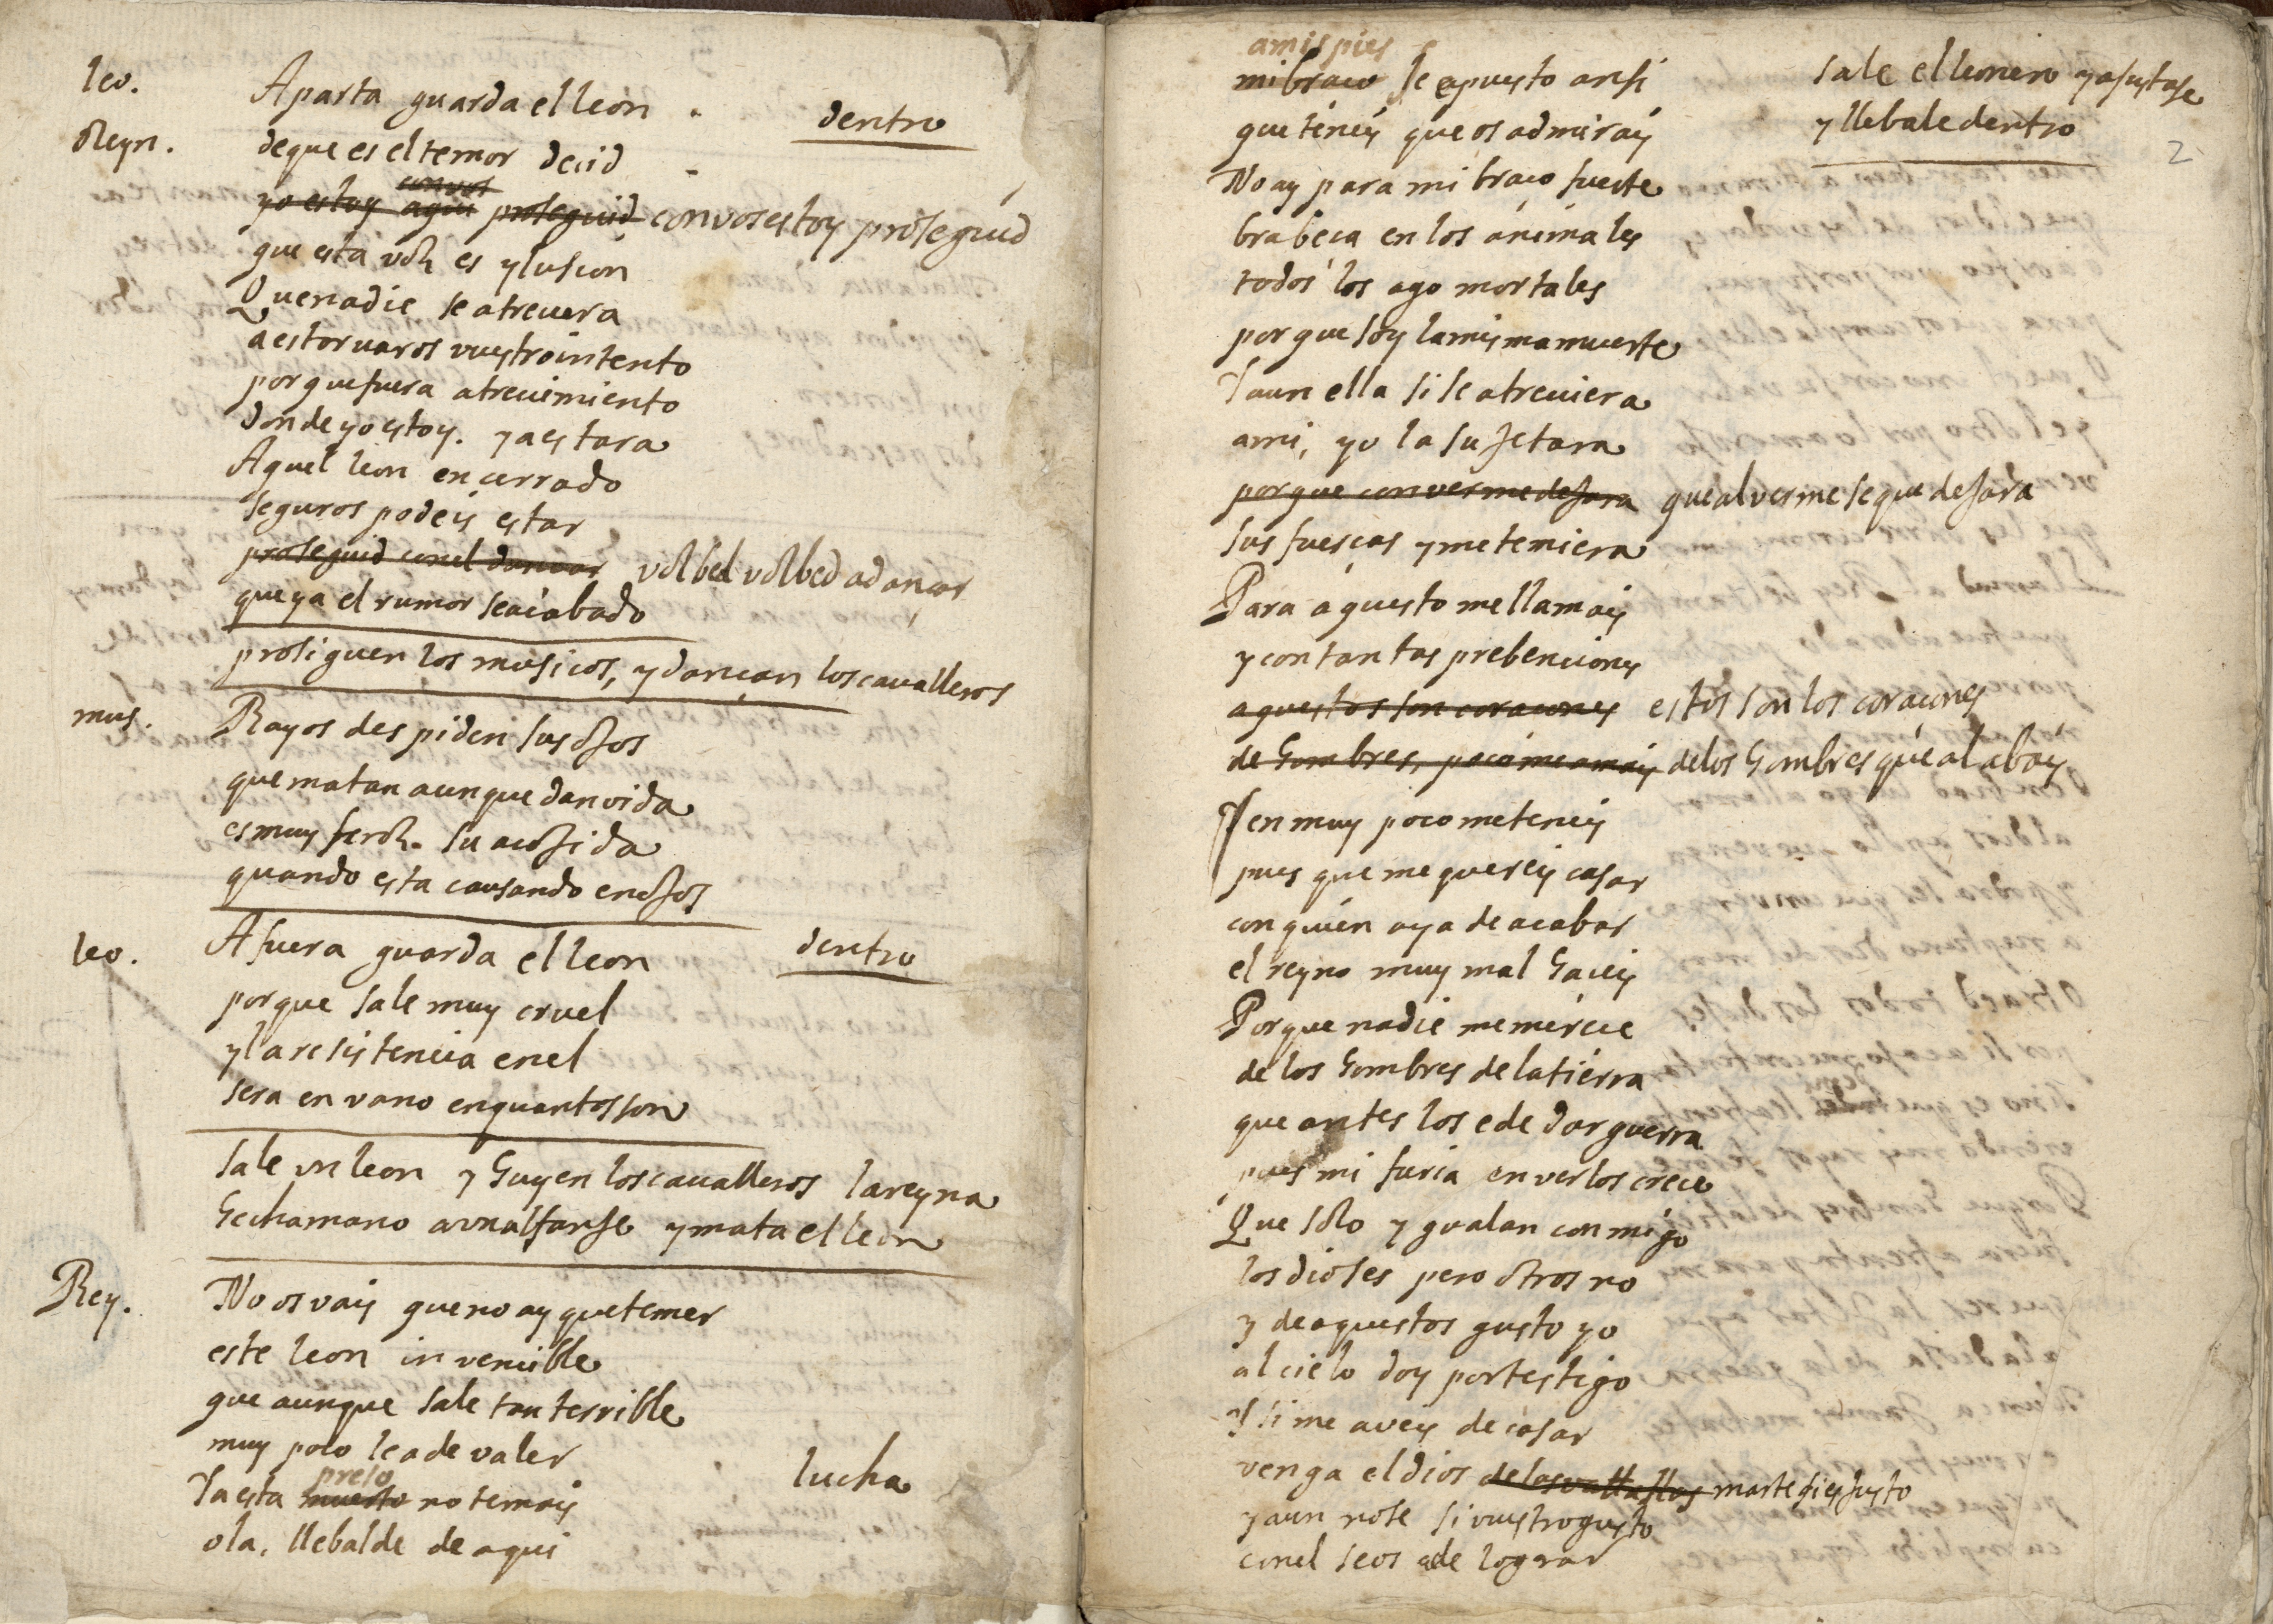 leo. Aparta guarda el leon dentro
Reyn. de que es el temor decid
con vos
yo estoy aqui proseguid con vos estoy proseguid
que esta voz es ylusion
Que nadie se atreuera
a estoruaros vuestro intento
porque fuera atreuimiento
donde yo estoy. ya estara
Aquel leon encerrado
seguros podeis estar
proseguid con el dancar volbed volbed a dançar
que ya el rumor se acabado
prosiguen los musicos, y dançan los caualleros
mus. Rayos despiden sus ojos
que matan aunque dan vida
es muy feroz su acojida
quando esta causando enojos
leo. Afuera guarda el leon dentro
porque sale muy cruel
y la resistencia en el
sera en vano en quantos son
Sale vn leon y huyen los caualleros la reyna
hecha mano a vn alfanje y mata el leon
Rey. No os vais que no ay que temer
este leon invencible
que aunque sale tan terrible
muy poco le a de valer
preso lucha
Ya esta muerto no temais
ola, llebalde de aqui
a mis pies
mi braco le a puesto ansi
Sale el leonero y asustase
y llebale dentro
2
que teneis que os admirais
No ay para mi braco fuerte
brabeca en los animales
todos los ago mortales
porque soy la misma muerte
Y aun ella si se atreuiera
a mi, yo la sujetara
porque con verme dejara que al verme se que dejara
sus fuerças y me temiera
Para aquesto me llamais
y con tantas prebenciones
aquestos son coracones estos son los coracones
de hombres, poco me amais de los hombres que alabais
Y en muy poco me teneis
pues que me quereis casar
con quien aya de acabar
el reyno muy mal haceis
Porque nadie me merece
de los hombres de la tierra
que antes los e de dar guerra
pues mi furia en verlos crece
Que solo ygualan conmigo
los dioses pero otros no
y de aquestos gusto yo
al cielo doy por testigo
Y si me aveis de casar
venga el dios de las vatallas marte si es justo
y aun no se si vuestro gusto
con el se os a de lograr